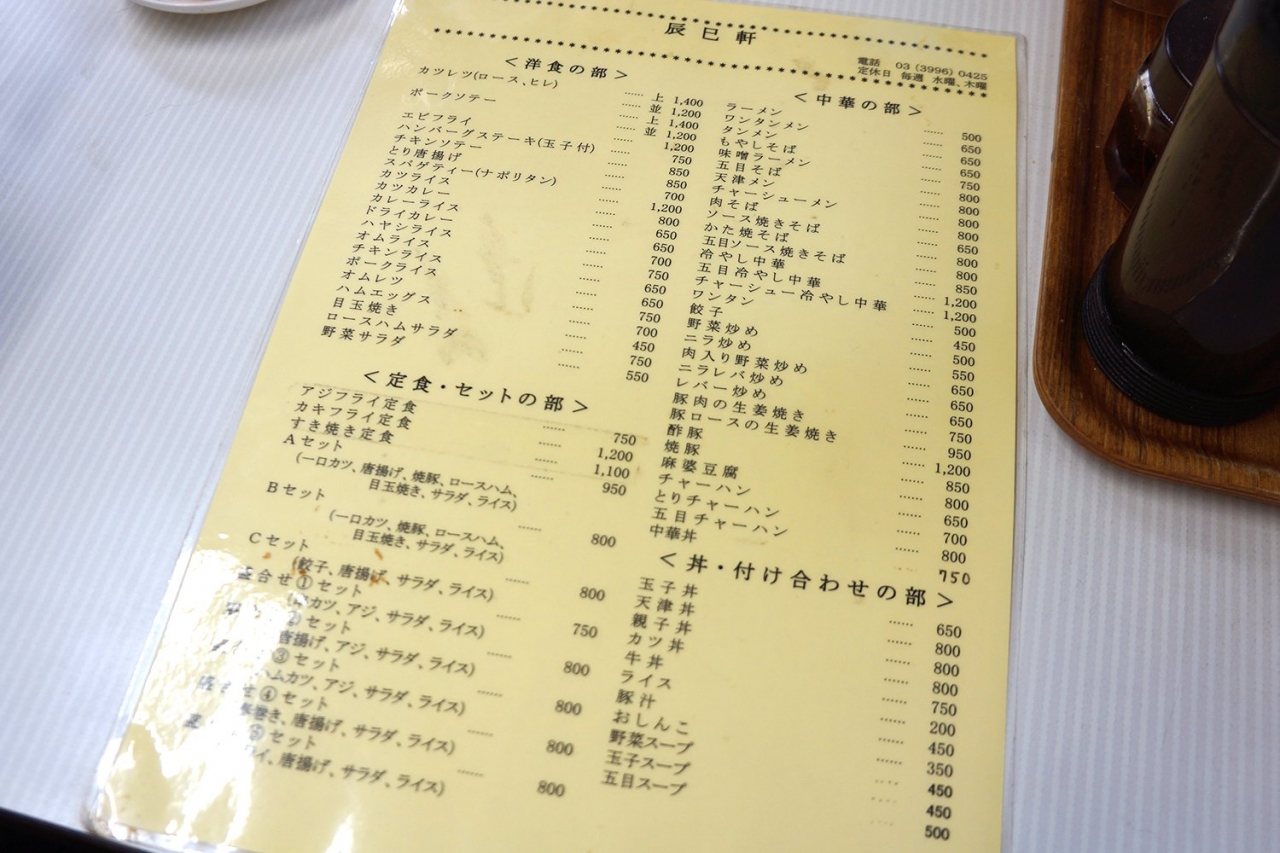 辰巳軒
電話 03 (3996) 0425
定休日 毎週 水曜、木曜
<洋食の部>
カツレツ(ロース、ヒレ) …… 上 1,400
並 1,200
ポークソテー …… 上 1,400
並 1,200
エビフライ …… 1,200
ハンバーグステーキ(玉子付) 750
チキンソテー …… 850
とり唐揚げ …… 850
スパゲティー(ナポリタン) …… 700
カツライス …… 1,200
カツカレー …… 800
カレーライス …… 650
ドライカレー …… 650
ハヤシライス …… 700
オムライス …… 750
チキンライス …… 650
ポークライス …… 650
オムレツ …… 750
ハムエッグス …… 700
目玉焼き …… 450
ロースハムサラダ …… 750
野菜サラダ …… 550
<定食・セットの部>
アジフライ定食 …… 750
カキフライ定食 …… 1,200
すき焼き定食 …… 1,100
Aセット …… 950
(一ロカツ、唐揚げ、焼豚、ロースハム、
目玉焼き、サラダ、ライス)
Bセット …… 800
(一ロカツ、焼豚、ロースハム、
目玉焼き、サラダ、ライス)
Cセット …… 800
(餃子、唐揚げ、サラダ、ライス)
盛合せ①セット …… 750
カツ、アジ、サラダ、ライス)
②セット …… 800
唐揚げ、アジ、サラダ、ライス)
③セット …… 800
ハムカツ、アジ、サラダ、ライス)
盛合せ④セット …… 800
春巻き、唐揚げ、サラダ、ライス)
⑤セット …… 800
唐揚げ、サラダ、ライス)
<中華の部>
ラーメン …… 500
ワンタンメン …… 650
タンメン …… 650
もやしそば …… 650
味噌ラーメン …… 750
五目そば …… 800
天津メン …… 800
チャーシューメン …… 800
肉そば …… 800
ソース焼きそば …… 650
かた焼そば …… 800
五目ソース焼きそば …… 800
冷やし中華 …… 850
五目冷やし中華 …… 1,200
チャーシュー冷やし中華 …… 1,200
ワンタン …… 500
餃子 …… 450
野菜炒め …… 500
ニラ炒め …… 550
肉入り野菜炒め …… 650
ニラレバ炒め …… 650
レバー炒め …… 650
豚肉の生姜焼き …… 750
豚ロースの生姜焼き …… 950
酢豚 …… 1,200
焼豚 …… 850
麻婆豆腐 …… 800
チャーハン …… 650
とりチャーハン …… 700
五目チャーハン …… 800
中華丼 …… 750
<丼・付け合わせの部>
玉子丼 …… 650
天津丼 …… 800
親子丼 …… 800
カツ丼 …… 800
牛丼 …… 750
ライス …… 200
豚汁 …… 450
おしんこ …… 350
野菜スープ …… 450
玉子スープ …… 450
五目スープ …… 500